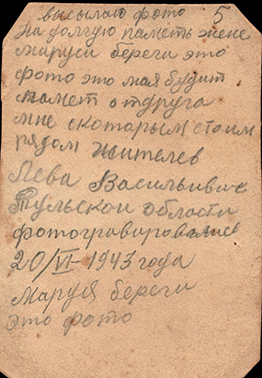 высылаю фото 5
На долгую паметь жене
Маруси береги это
фото это мая будит
памет от друга
мне с которым стоим
рядом Жителев
Лева Васильивич
Тульской области
фотогравировались
20/VI-1943 года
Маруя береги
это фото